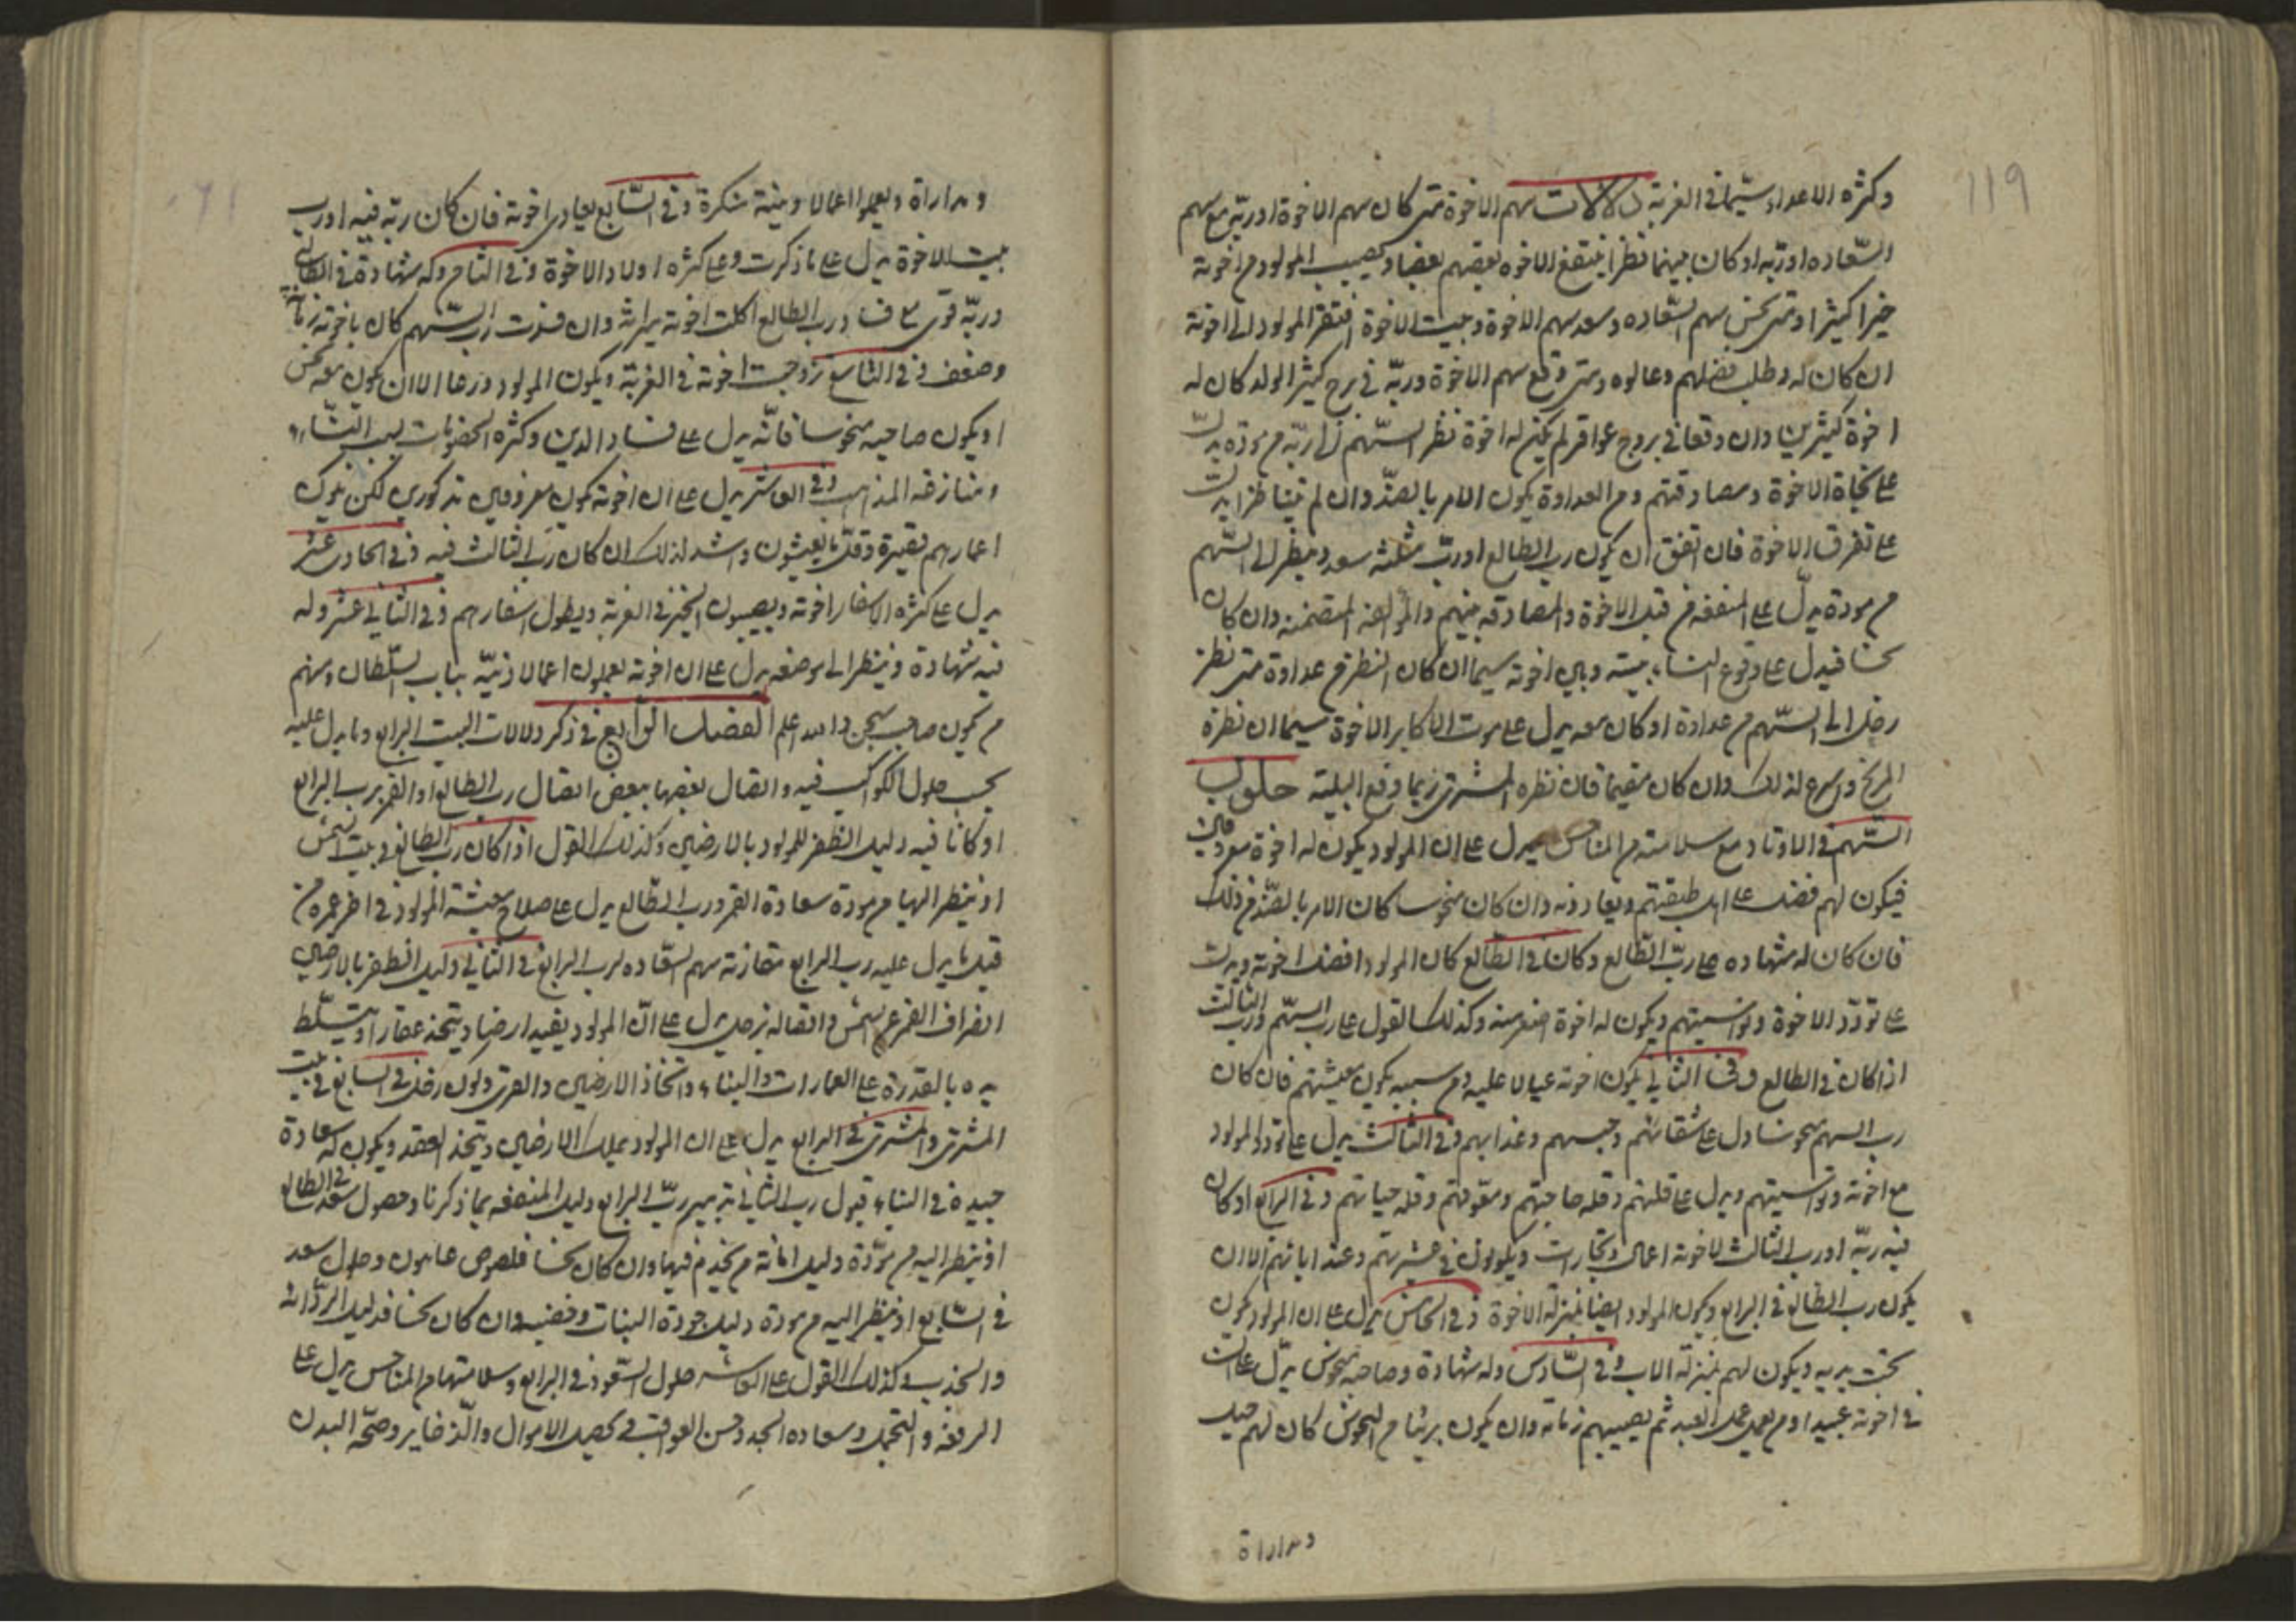 119
وكثره الاعداء سيّما في الغربة دلالات سهم الاخوة متى كان سهم الاخوة او ربّه مع سهم
السّعاده او ربّه او كان بينهما نظرا ينتفع الاخوه بعضهم بعضا ويصيب المولود من اخوته
خيرا كثيرا ومتى نحس سهم السّعاده وسعد سهم الاخوة وبيت الاخوة افتقر المولود الى اخوته
ان كان له وطلب فضلهم وعالوه ومتى وقع سهم الاخوة وربّه في برج كثير الولد كان له
اخوة كثيرين وان وقعا في بروج عواقر لم يكن له اخوة نظر السّهم الى ربّه من مودّه يدلّ
على نجاة الاخوة ومصادقتهم ومن العداوة يكون الامر بالضدّ وان لم يتناظرا يدلّ
على تفرق الاخوة فان اتفق ان يكون رب الطالع او ربّ مثلثته سعد وينظر الى السّهم
من مودة يدلّ على المنفعه من قبل الاخوة والمصادقه بينهم وان كان
نحسا فيدل على وقوع الشتاء بينه وبين اخوته سيما ان كان النظر من عداوة متى نظر
زحل الى السّهم من عداوة او كان معه يدل على موت الاكابر الاخوة سيما ان نظره
المريخ واسرع لذلك وان كان مقيما فان نظره المشترى ربما دفع البليّة حلول
السّهم في الاوتاد مع سلامته من المناحس يدل على ان المولود يكون له اخوة معروفين
فيكون لهم فضل على اهل طبقتهم وان كان منحوسا كان الامر بالضدّ من ذلك
فان كان له شهاده على ربّ الطالع وكان في الطالع كان المولود افضل اخوته ويدلّ
على تودّد الاخوة ويكون له اخوة اصغر منه وكذلك القول على رب السّهم ورب الثالث
اذا كان في الطالع وفي الثاني يكون اخوته عيالا عليه ومن سببه يكون معيشتهم فان كان
رب السهم منحوسا دل على شقائهم وحبسهم وعذابهم وفي الثالث يدل على تودد المولود
مع اخوته ويدل على قلتهم وقله حاجتهم وقله حياتهم وفي الرابع او كان
فيه ربّه او رب الثالث لاخوته اعمال وتجارات ويكونون في عشيرتهم وعند ابائهم الا ان
يكون رب الطالع في الرابع ويكون المولود ايضا بمنزله الاخوة وفي الخامس يدل على ان المولود يكون
تحت يديه ويكون لهم بمنزله الاب وفي السّادس وله شهادة وصاحبه منحوس يدلّ على ان
في اخوته عبيد او من يعمل عمل العبد ثم يصيبهم زمانه وان يكون بريئا من النحوس كان لهم حيل
ومداراة
ومداراة ويعملوا اعمالا دينيّة منكرة وفي السّابع يعادى اخوته فان كان ربّه فيه او رب
بيت الاخوة يدل على ما ذكرت وعلى كثره اولاد الاخوة وفي الثامن وله شهادة في الطالع
وربّه قوى ورب الطالع اكلت اخوته ميراثه وان رب السّهم كان باخوته زمانه
وضعف وفي التاسع تزوجت اخوته في الغربة ويكون المولود ورعا الا ان يكون معه نحس
او يكون صاحبه منحوسا فانّه يدل على فساد الدين وكثره الخصومات بسبب النّساء
ومنازعه المذاهب وفي العاشر يدل على ان اخوته يكون معروفين مذكورين لكن يكون
اعمارهم قصيرة وقلّ ما يعيشون واشد لذلك ان كان رب الثالث فيه وفي الحادى عشر
يدل على كثره الاسفار اخوته ويصيبون الخير في الغربة ويطول اسفارهم وفي الثاني عشر وله
فيه شهادة وينظر الى موضعه يدل على ان اخوته يعملون اعمالا دنيّه بباب السّلطان ومنهم
من يكون صاحب سجن والله اعلم الفصل الرابع في ذكر دلالات البيت الرابع وما يدل عليه
بحسب حلول الكواكب فيه واتصال بعضها ببعض اتصال رب الطالع او القمر برب الرابع
او كانا فيه دليل الظفر للمولود بالارضين وكذلك القول اذا كان رب الطالع في بيت الشمس
او ينظر اليها من مودة سعادة القمر ورب الطالع يدل على صلاح معيشة المولود في اخر عمره من
قبل ما يدل عليه رب الرابع مقارنة سهم السّعاده لرب الرابع في الثاني دليل الظفر بالارضين
انصراف القمر عن الشمس واتصاله بزحل يدل على انّ المولود يفيد ارضا ويتخذ عقارا ويتسلّط
يده بالقدرة على العمارات والبناء واتخاذ الارضين والقرى وكون زحل في السابع في بيت
المشترى والمشترى في الرابع يدل على ان المولود يملك الارضين ويتخذ العقد ويكون له سعادة
جيدة في البناء قبول رب الثاني تدبير ربّ الرابع دليل المنفعه بما ذكرنا وحصول سعد في الطالع
او ينظر اليه من مودّة دليل امانة من يخدم فيها وان كان نحسا فلصوص خاينون وحلول سعد
في السّابع او ينظر اليه من مودة دليل جودة النبات وخصبه وان كان نحسا فدليل الردّائه
والجذب وكذلك القول على العاشر حلول السّعود في الرابع وسلامتها من المناحس يدل على
الرفعه والتجمل وسعاده الجد وحسن العواقب في تحصيل الاموال والذخاير وصحّه البدن